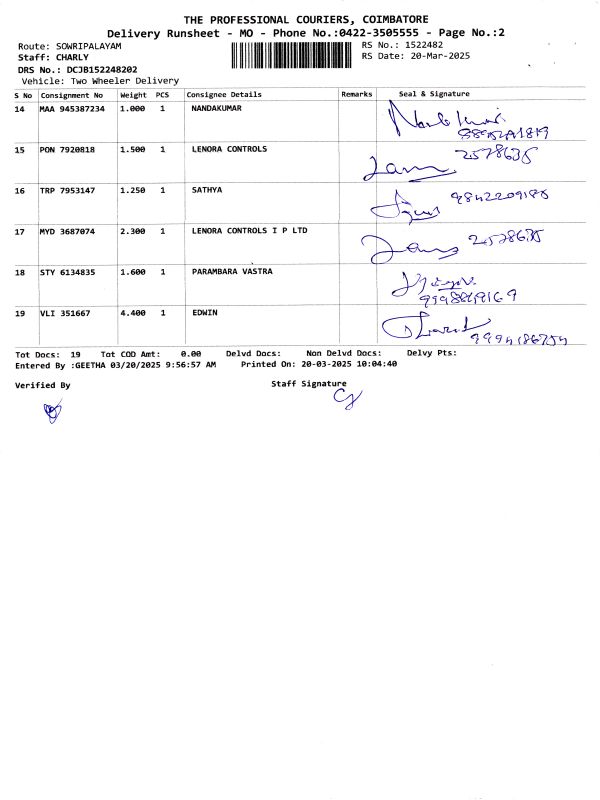 THE PROFESSIONAL COURIERS, COIMBATORE
Delivery Runsheet - MO - Phone No.:0422-3505555 - Page No.:2
Route: SOWRIPALAYAM RS No.: 1522482
Staff: CHARLY RS Date: 20-Mar-2025
DRS No.: DCJB152248202
Vehicle: Two Wheeler Delivery
S No Consignment No Weight PCS Consignee Details Remarks Seal & Signature
14 MAA 945387234 1.000 1 NANDAKUMAR
15 PON 7920818 1.500 1 LENORA CONTROLS 2578635
16 TRP 7953147 1.250 1 SATHYA
17 MYD 3687074 2.300 1 LENORA CONTROLS I P LTD 2578635
18 STY 6134835 1.600 1 PARAMBARA VASTRA
19 VLI 351667 4.400 1 EDWIN
Tot Docs: 19 Tot COD Amt: 0.00 Delvd Docs: Non Delvd Docs: Delvy Pts:
Entered By :GEETHA 03/20/2025 9:56:57 AM Printed On: 20-03-2025 10:04:40
Verified By Staff Signature